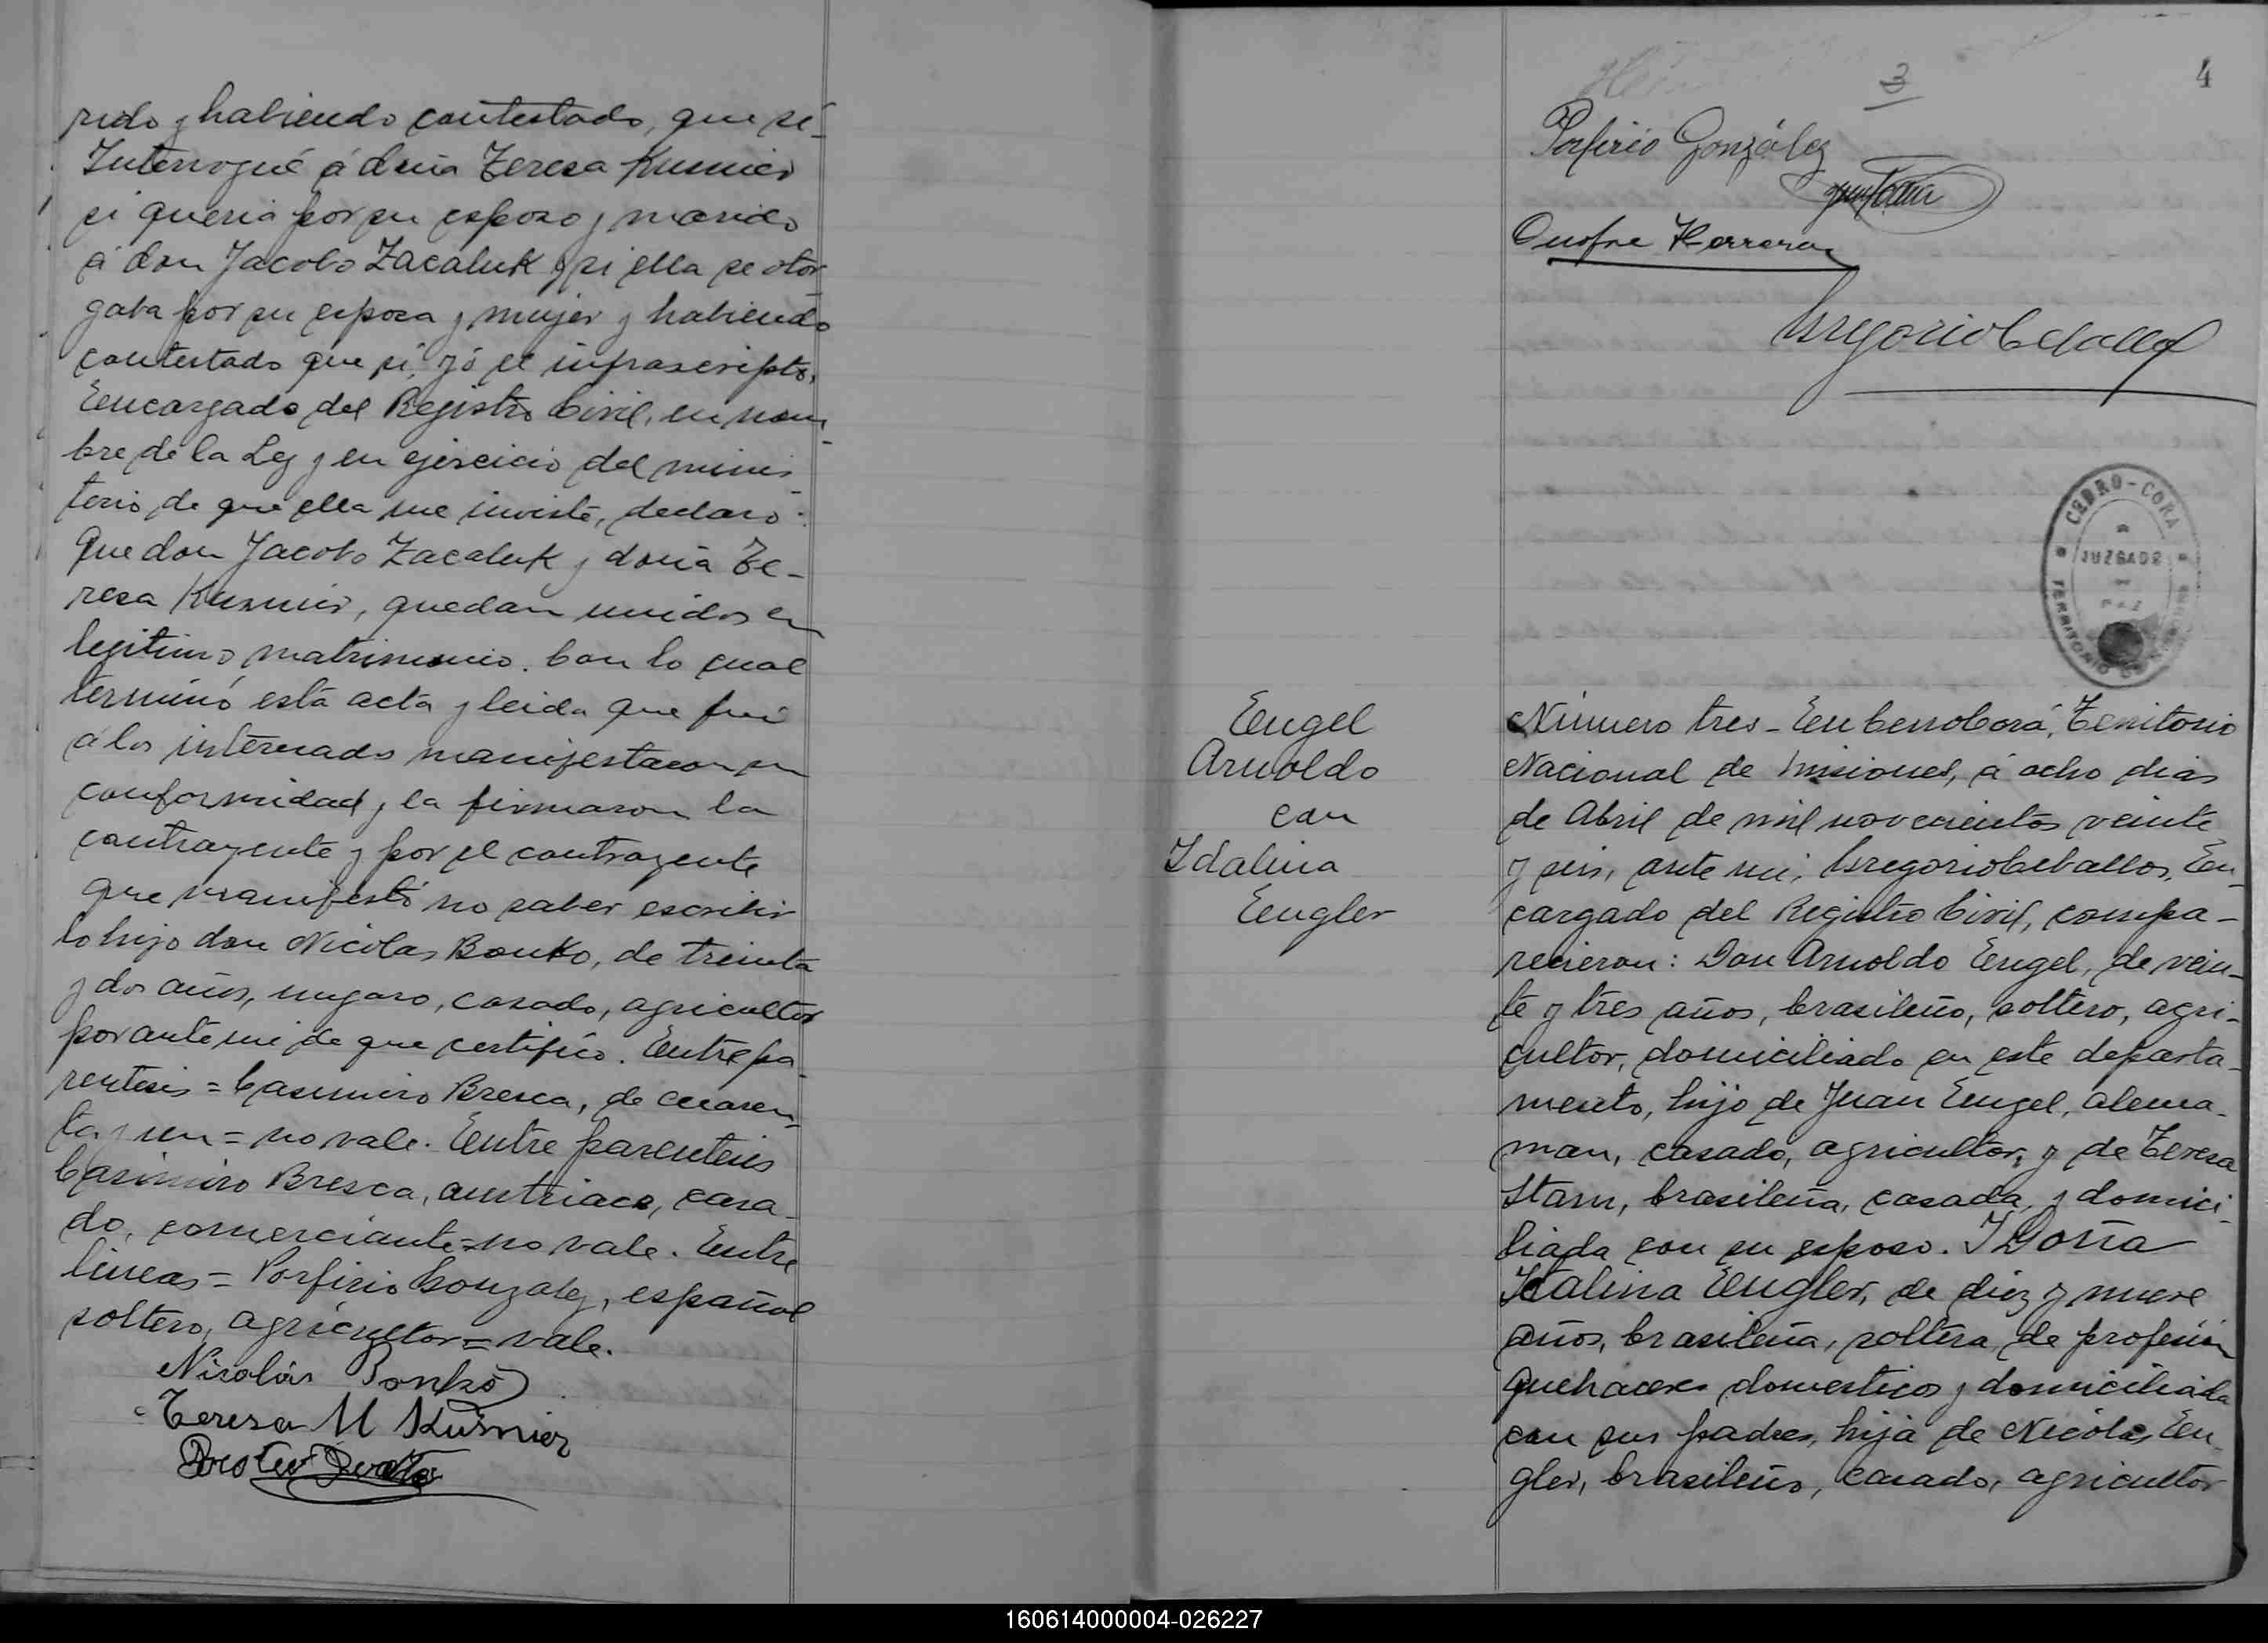 rido y habiendo contestado, que sí_
Interrogué á doña Teresa Kusnier
si queria por su esposo y marido
á don Jacobo Zacaluk y si ella se otor
gaba por su esposa y mujer y habiendo
contestado que sí, yó el infrascripto,
Encargado del Registro Civil, en nom_
bre de la Ley y en ejercicio del minis_
terio de que ella me inviste, declaro:
Que don Jacobo Zacaluk y doña Te-
resa Kusnier, quedan unidos en
legitimo matrimonio. Con lo cual
terminó esta acta y leida que fué
á los internado manifestaron su
conformidad y la firmaron la
contrayente y por el contrayente
que manifestó no saber escribir
lo hizo don Nicolas Bonko, de treinta
y dos años, ungaro, casado, agricultor
por ante mi de que certifico. Entre pa_
rentesis = Casimiro Bresca, de cuaren_
ta y un = no vale. Entre parentesis
Casimiro Bresca, austriaco, casa_
do, comerciante = no vale. Entre
lineas = Porfirio Gonzalez, español
soltero, agricultor = vale.
Nicolás Bonkó
Teresa M Kusnier
3
4
Porfirio González
Onofre Herrera
Gregorio Ceballos
CERRO-CORA
JUZGADO
DE
PAZ
TERRITORIO DE MISIONES
Engel
Arnoldo
con
Idalina
Engler
Número tres - En Cerro Corá, Territorio
Nacional de Misiones, á ocho dias
de Abril de mil novecientos veinte
y seis, ante mi, Gregorio Ceballos, En_
cargado del Registro Civil, compa-
recieron: Don Arnoldo Engel, de vein_
te y tres años, brasileño, soltero, agri_
cultor, domiciliado en este departa_
mento, hijo de Juan Engel, alema_
man, casado, agricultor, y de Teresa
Starn, brasileña, casada, y domici_
liada con su esposo. Y Doña
Idalina Engler, de diez y nueve
años, brasileña, soltera, de profesión
quehaceres domesticos y domiciliada
con sus padres, hija de Nicolás En_
gler, brasileño, casado, agricultor
160614000004-026227